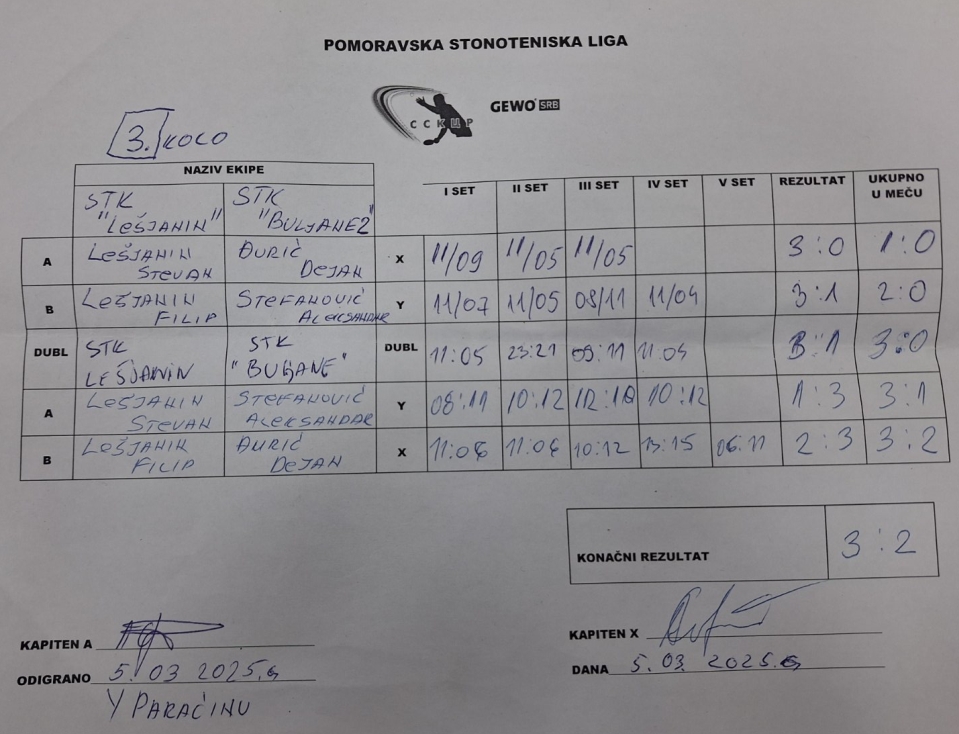 POMORAVSKA STONOTENISKA LIGA
ССКЦР
GEWO SRB
3. KOLO
NAZIV EKIPE
I SET II SET III SET IV SET V SET REZULTAT UKUPNO U MEČU
STK "LEŠJANIN" STK "BULJANE2"
A LEŠJANIN STEVAN ĐURIĆ DEJAN X 11/09 11/05 11/05 3:0 1:0
B LEŠJANIN FILIP STEFANOVIĆ ALEKSANDAR Y 11/07 11/05 08/11 11/04 3:1 2:0
DUBL STK LEŠJANIN STK "BULJANE" DUBL 11:05 23:21 09:11 11:04 3:1 3:0
A LEŠJANIN STEVAN STEFANOVIĆ ALEKSANDAR Y 08:11 10:12 12:10 10:12 1:3 3:1
B LEŠJANIN FILIP ĐURIĆ DEJAN X 11:06 11:06 10:12 13:15 06:11 2:3 3:2
KONAČNI REZULTAT 3:2
KAPITEN A
KAPITEN X
ODIGRANO 5.03 2025.G
DANA 5.03. 2025.G
У PARAĆINU